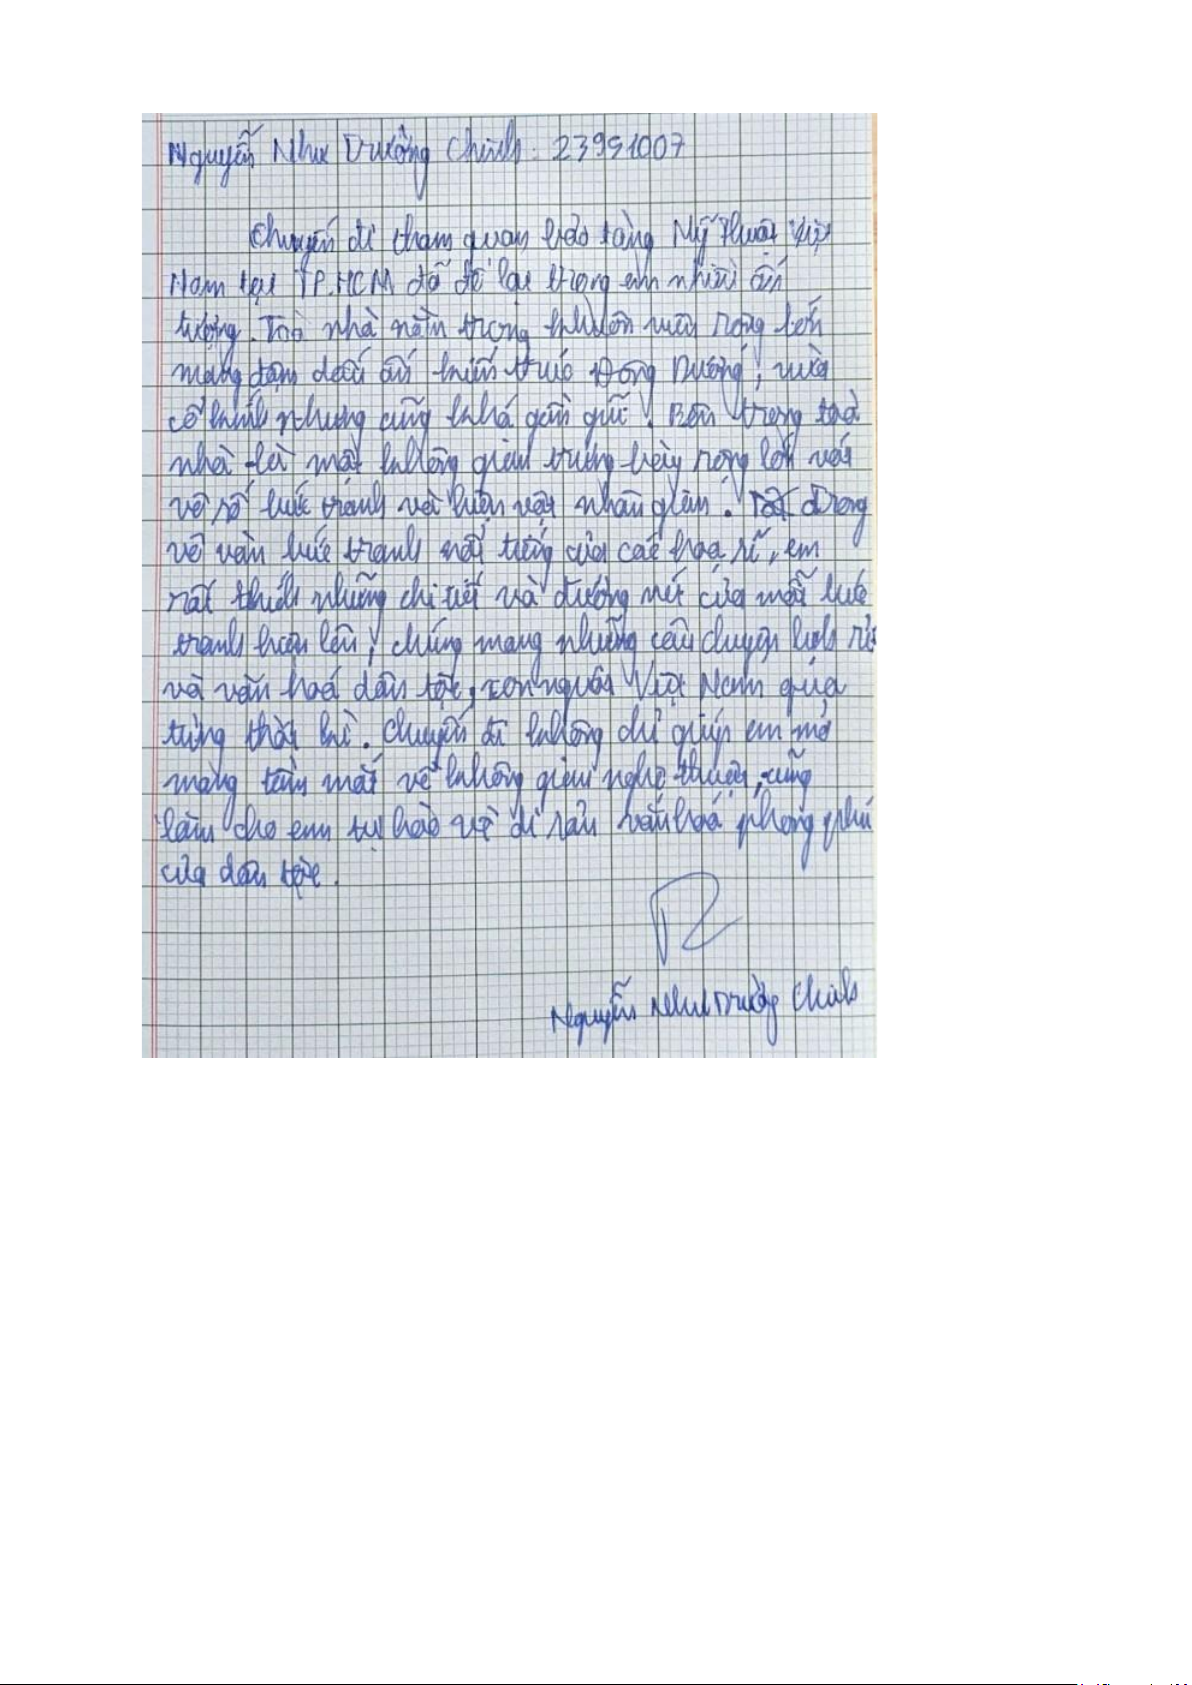 Nguyễn Như Trường Chinh. 23951007
Chuyến đi tham quan bảo tàng Mỹ Thuật Việt
Nam tại TP.HCM đã để lại trong em nhiều ấn
tượng. Toà nhà nằm trong khuôn viên rộng lớn
mang đậm dấu ấn kiến trúc Đông Dương, vừa
cổ kính nhưng cũng khá gần gũi. Bên trong toà
nhà là một không gian trưng bày rộng lớn với
vô số bức tranh và hiện vật nhân gian. Trong
vô vàn bức tranh nổi tiếng của các hoạ sĩ, em
rất thích những chi tiết và đường nét của mỗi bức
tranh hiện lên, chúng mang những câu chuyện lịch sử
và văn hoá dân tộc, con người Việt Nam qua
từng thời kì. Chuyến đi không chỉ giúp em mở
mang tầm mắt về không gian nghệ thuật, cũng
làm cho em tự hào về di sản văn hoá phong phú
của dân tộc.
Nguyễn Như Trường Chinh